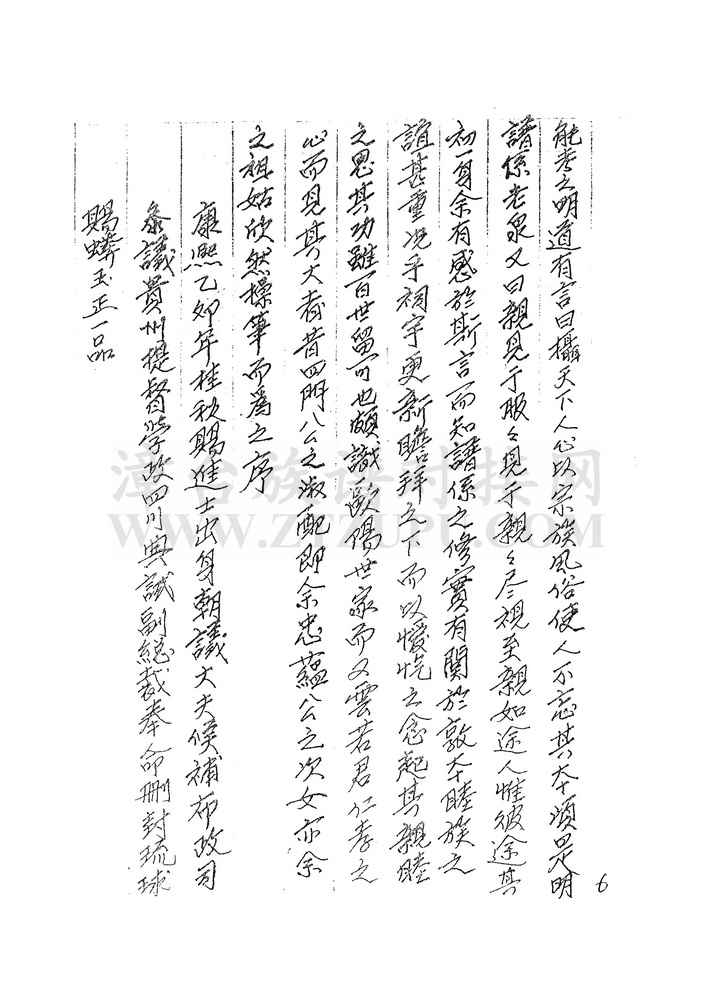 能考之明道有言曰攝天下人心以宗族風俗使人不忘其本須是明
譜係老泉又曰親見于服々見于親々尽視至親如途人惟彼途其
初一身余有感於斯言而知譜係之修實有關於敦本睦族之
誼甚重况乎祠宇更新瞻拜之下而以愾忾之念起其親睦
之思其功雖百世留可也頗識歐陽世家而又雲若君仁孝之
心而見其大者昔四門八公之淑配即余忠蘊公之次女亦余
之祖姑欣然操筆而為之序
康熙乙卯年桂秋賜進士出身朝議大夫候補布政司
叅議貴州提督学政四川典試副総裁奉命刪封琉球
賜蟒玉正一品
漳台族谱对接网
WWW.ZTZUPU.COM
6